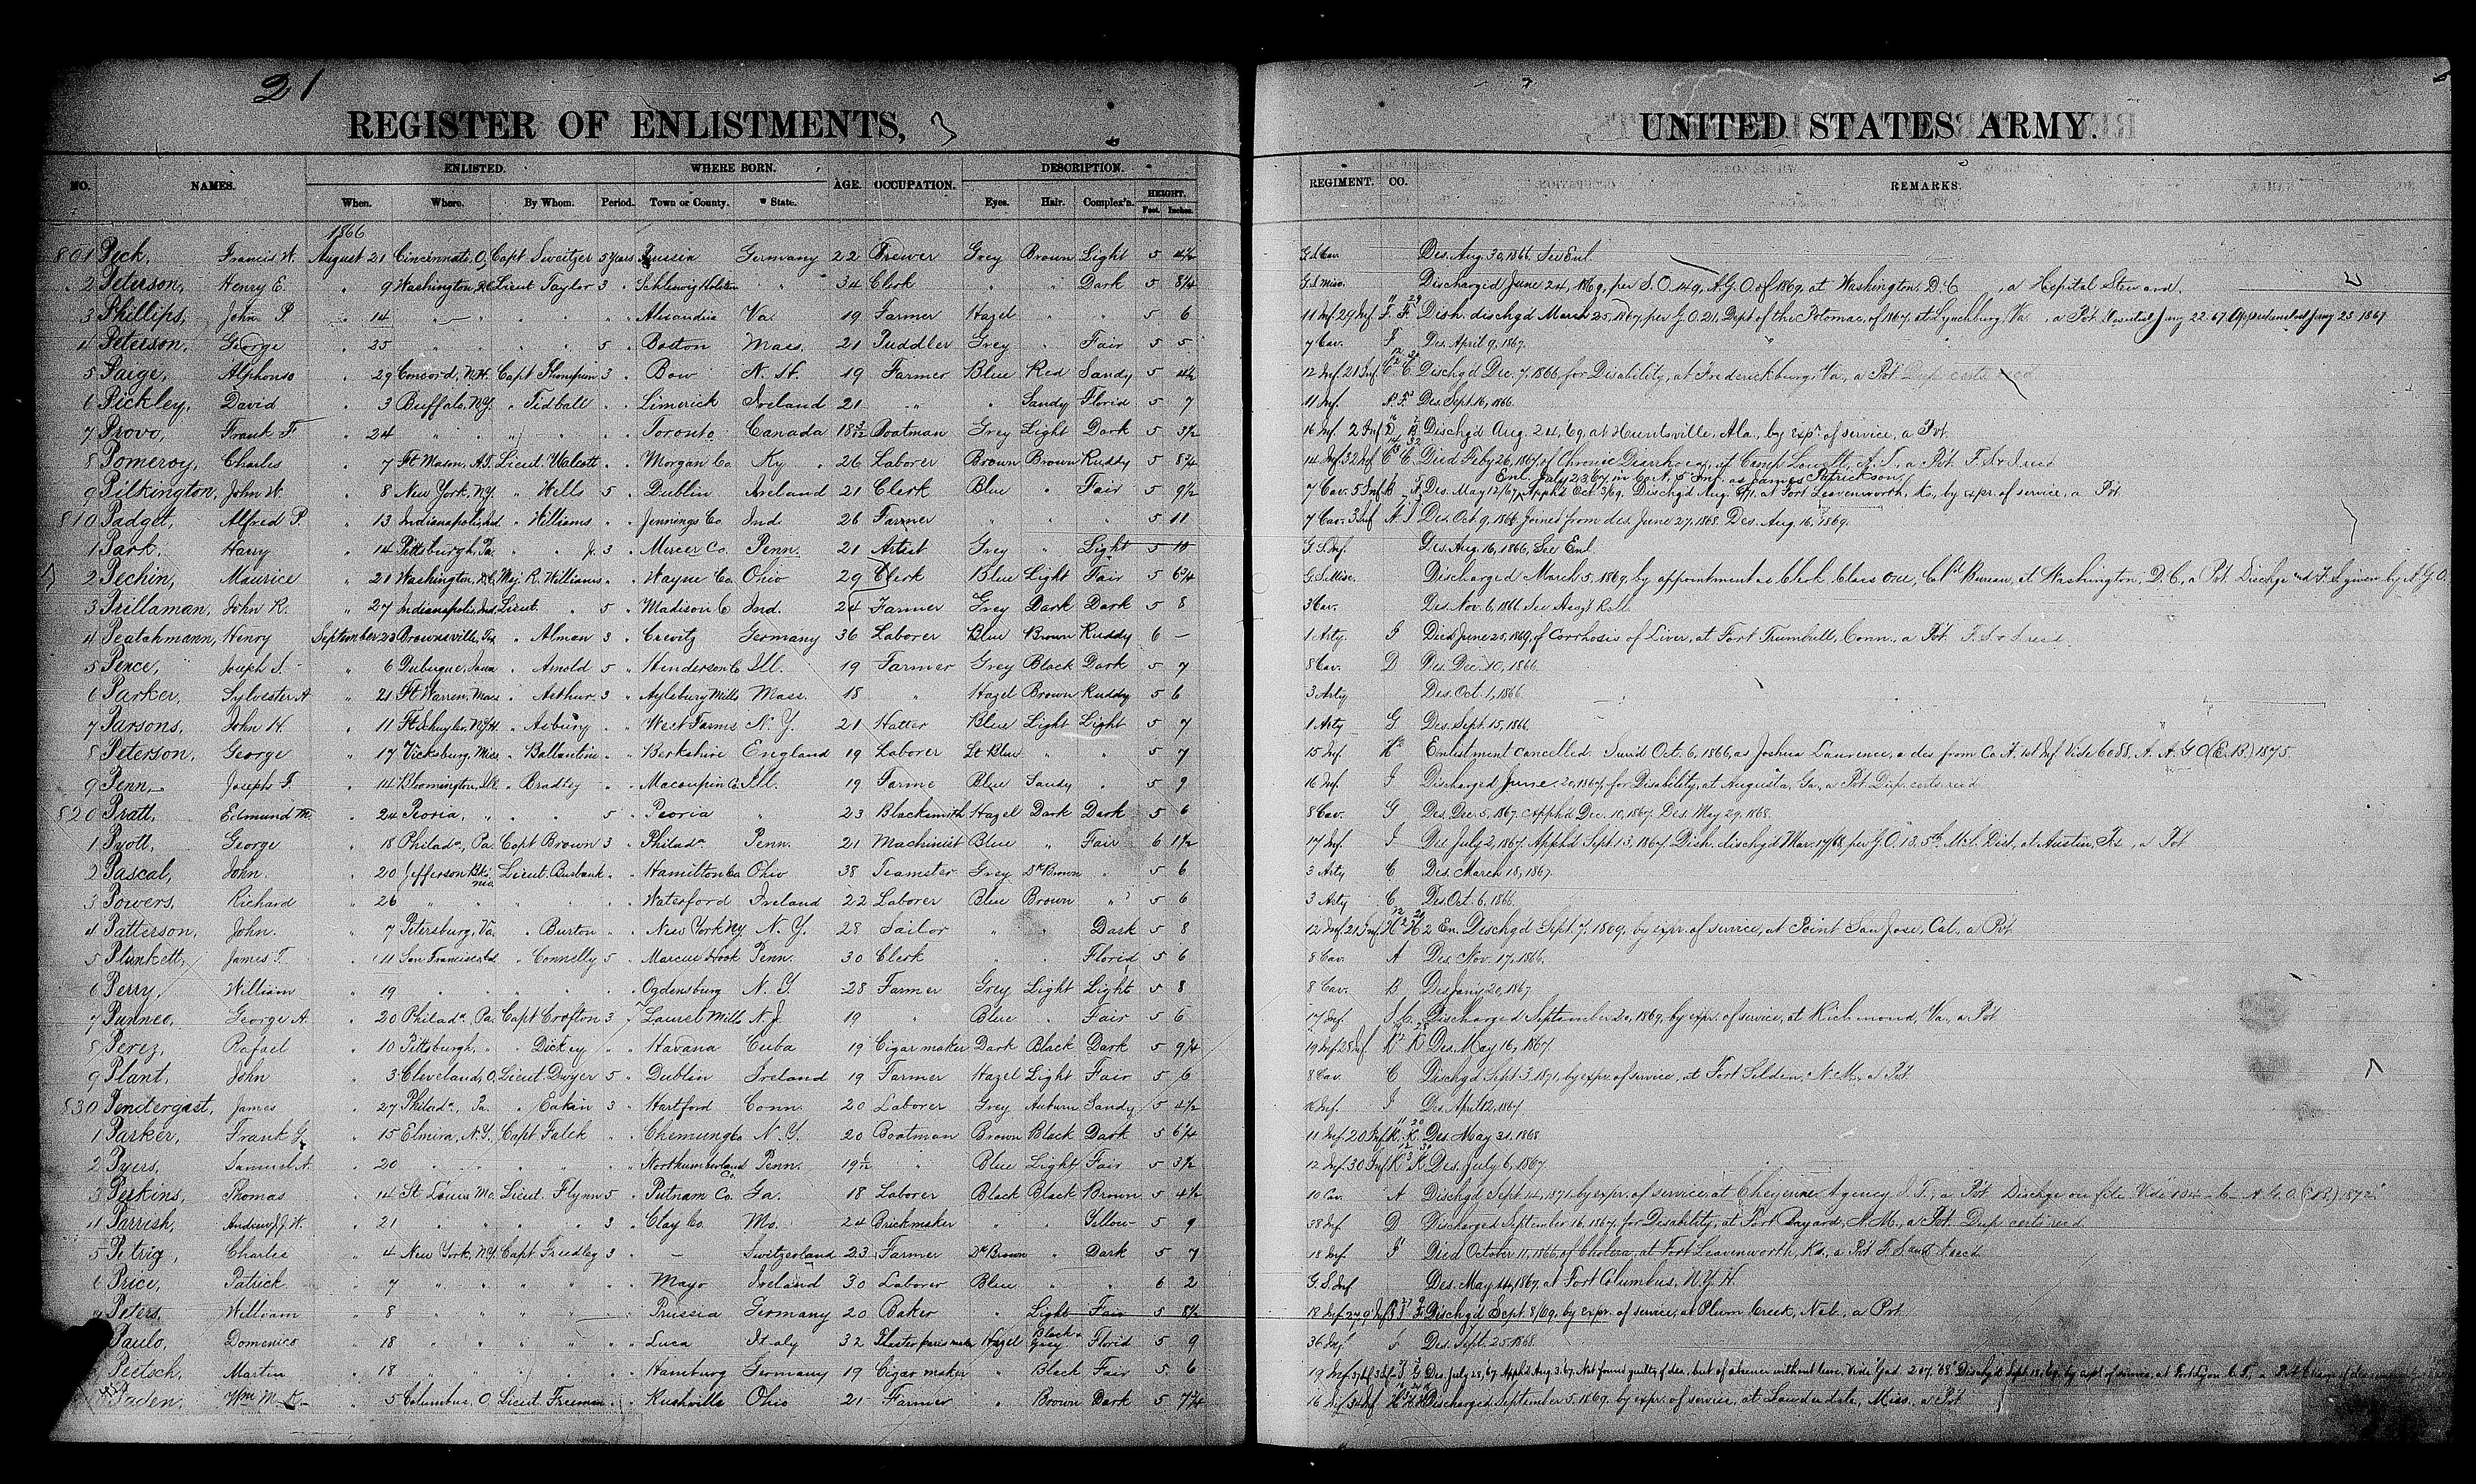 21
REGISTER OF ENLISTMENTS, 3
UNITED STATES ARMY.
NO. NAMES. ENLISTED. WHERE BORN. AGE. OCCUPATION. DESCRIPTION. REGIMENT. CO. REMARKS.
When. Where. By Whom. Period. Town or County. State. Eyes. Hair. Complex'n. HEIGHT. Feet. Inches.
1866
801 Peck, Francis W. August 21 Cincinnati, O, Capt Sweitzer 5 years Prussia Germany 22 Brewer Grey Brown Light 5 4½ G.S. Cav. Des. Aug. 30, 1866. See Enl.
2 Peterson, Henry E. " 9 Washington, D.C. Lieut Taylor 3 " Schleswig Holstein " 34 Clerk " " Dark 5 8¼ G.S. Misc. Discharged June 24, 1869, per S.O. 149, A.G.O. of 1869, at Washington, D.C., a Hospital Steward.
3 Phillips, John P. " 14 " " " " " Alexandria Va. 19 Farmer Hazel " " 5 6 11 Inf. 29 Inf. F. F. Dish. dischgd March 25, 1867, per G.O. 21, Dept of the Potomac, of 1867, at Lynchburg, Va., a Pvt.
4 Peterson, George " 25 " " " 5 " Boston Mass. 21 Puddler Grey " Fair 5 5 7 Cav. F Des. April 9, 1867.
5 Paige, Alphonso " 29 Concord, N.H. Capt Thompson 3 " Bow N.H. 19 Farmer Blue Red Sandy 5 4½ 12 Inf. 21 Inf. C C Dischgd Dec. 7, 1866 for Disability, at Fredericksburg, Va., a Pvt. Dup. certs recd
6 Pickley, David " 3 Buffalo, N.Y. " Tidball " " Limerick Ireland 21 " " Sandy Florid 5 7 11 Inf. Des. Sept. 16, 1866.
7 Provo, Frank F. " 24 " " " " " Toronto Canada 18 Boatman Grey Light Dark 5 3½ 16 Inf. 2 Inf. D Dischgd Aug. 24, 69, at Huntsville, Ala., by expn of service, a Pvt.
8 Pomeroy, Charles " 7 Ft Mason, A.T. Lieut. Walcott " " Morgan Co. Ky. 26 Laborer Brown Brown Ruddy 5 8¾ 14 Inf. 32 Inf. C C Died Feby 26, 1867, of Chronic Diarrhoea, at Camp Lowell, A.T., a Pvt. F.S. & I. recd
Enl. July 23, 67, in Co. A, 5" Inf. as James Patrickson.
9 Pilkington, John W. " 8 New York, N.Y. " Wells 5 " Dublin Ireland 21 Clerk Blue " Fair 5 9½ 7 Cav. 5 Inf. Des. May 12/67, Apphd Oct. 3/69. Dischgd Aug. at Fort Leavenworth, Ks., by expr. of service, a Pvt
810 Padget, Alfred P. " 13 Indianapolis, Ind. " Williams " " Jennings Co. Ind. 26 Farmer " " " 5 11 7 Cav. 3 Inf. Des. Oct. 9, 1866. Joined from des. June 27, 1868. Des. Aug. 16, 1869.
1 Park, Harry " 14 Pittsburgh, Pa. " " Jr. 3 " Mercer Co. Penn. 21 Artist Grey " Light 5 10 G.S. Inf. Des. Aug. 16, 1866, See Enl.
2 Pechin, Maurice " 21 Washington, D.C. Maj. R. Williams " " Wayne Co. Ohio 29 Clerk Blue Light Fair 5 6¾ G.S. Misc. Discharged March 5, 1869, by appointment as Clerk Class one, Bureau, at Washington, D.C., a Pvt. Dischge and F.S. given by A.G.O.
3 Prillaman, John R. " 27 Indianapolis, Ind. Lieut. " 5 " Madison C Ind. 24 Farmer Grey Dark Dark 5 8 3 Cav. Des. Nov. 6, 1866.
4 Peatahmann, Henry September 23 Brownsville, Tex " Alman 3 " Crevitz Germany 36 Laborer Blue Brown Ruddy 6 – 1 Arty. Died June 25, 1869, of Corrhosis of Liver, at Fort Trumbull, Conn., a Pvt. F.S. & I. recd.
5 Pence, Joseph S. " 6 Dubuque, Iowa " Arnold 5 " Henderson Co Ill. 19 Farmer Grey Black Dark 5 7 8 Cav. D Des. Dec. 10, 1866.
6 Parker, Sylvester A " 21 Ft Warren, Mass " Arthur 3 " Aylsbury Mills Mass. 18 " Hazel Brown Ruddy 5 6 3 Arty Des. Oct. 1, 1866.
7 Parsons, John H. " 11 Ft Schuyler, N.Y.H. " Asbury " " West Farms N.Y. 21 Hatter Blue Light Light 5 7 1 Arty G Des. Sept. 15, 1866.
8 Peterson, George " 17 Vicksburg, Miss " Ballantine " " Berkshire England 19 Laborer Lt Blue " " 5 7 15 Inf. Enlistment cancelled. Surd Oct. 6, 1866, as Joshua Laurence, a des. from Co. A. 1st Inf. Vide 6088, A. A.G.O. (E.B.) 1875.
9 Penn, Joseph F. " 14 Bloomington, Ill " Bradley " " Macoupin Co. Ill. 19 Farme Blue Sandy " 5 9 16 Inf. Discharged June 20, 1867, for Disability, at Augusta, Ga., a Pvt. Dup. certs. recd
820 Pratt, Edmund M. " 24 Peoria, " " " 5 " Peoria " 23 Blacksmith Hazel Dark Dark 5 6 8 Cav. G Des. Dec. 5, 1867. Apphd Dec. 10, 1867. Des. May 29, 1868.
1 Pyott, George " 18 Philada, Pa. Capt Brown 3 " Philada Penn. 21 Machinist Blue " Fair 6 1½ 17 Inf. I Des. July 2, 1867. Apphd Sept. 13, 1867. Dish. dischgd Mar. 17/68, per G.O. 13, 5th Mil. Dist., at Austin, Tex., a Pvt
2 Pascal, John. " 20 Jefferson Bks, Mo. Lieut. Burbank " " Hamilton Co Ohio 38 Teamster Grey Dk Brown " 5 6 3 Arty C Des. March 18, 1867.
3 Powers, Richard " 26 " " " " " Waterford Ireland 22 Laborer Blue Brown " 5 6 3 Arty C Des. Oct. 6, 1866.
4 Patterson, John. " 7 Petersburg, Va. " Burton " " New York Ny N.Y. 28 Sailor " " Dark 5 8 12 Inf. 21 Inf. H H 2 En. Dischgd Sept. 7, 1869, by expr. of service, at Point San Jose, Cal., a Pvt
5 Plunkett, James T. " 11 San Francisco Cal. " Connelly 5 " Marcus Hook Penn. 30 Clerk " " Florid 5 6 8 Cav. A Des. Nov. 17, 1866.
6 Perry, William " 19 " " " " " Ogdensburg N.Y. 28 Farmer Grey Light Light 5 8 8 Cav. B Des. Jany 20, 1867
7 Punnee, George A. " 20 Philada. Pa. Capt Crofton 3 " Laurel Mills N.J. 19 " Blue " Fair 5 6 17 Inf. Discharged September 20, 1869, by expr. of service, at Richmond, Va., a Pvt
8 Perez, Rafael " 10 Pittsburgh, " " Dickey " " Havana Cuba 19 Cigar maker Dark Black Dark 5 9¾ 19 Inf. 28 Inf. K K Des. May 16, 1867
9 Plant, John " 3 Cleveland, O. Lieut. Dwyer 5 " Dublin Ireland 19 Farmer Hazel Light Fair 5 6 8 Cav. C Dischgd Sept. 3, 1871, by expr. of service, at Fort Selden, N.M., a Pvt.
830 Pendergast, James " 27 Philada., Pa. " Eakin 3 " Hartford Conn. 20 Laborer Grey Auburn Sandy 5 4½ 16 Inf. I Des. April 2, 1867
1 Parker, Frank G. " 15 Elmira, N.Y. Capt Falck " " Chemung Co N.Y. 20 Boatman Brown Black Dark 5 6¼ 11 Inf. 20 Inf. K. K. Des. May 31, 1868
2 Pyers, Samuel A. " 20 " " " " " Northumberland Co. Penn. 19 " Blue Light Fair 5 3½ 12 Inf. 30 Inf. K K Des. July 6, 1867.
3 Perkins, Thomas " 14 St Louis Mo. Lieut. Flynn 5 " Putnam Co. Ga. 18 Laborer Black Black Brown 5 4½ 10 Cav. A Dischgd Sept. 14, 1871, by expr. of service, at Cheyenne Agency I.T., a Pvt. Dischge on file
4 Parrish, Andrew J.W. " 21 " " " " 3 " Clay Co. Mo. 24 Brickmaker " " Yellow 5 9 38 Inf. D Discharged September 16, 1867, for Disability, at Fort Bayard, N.M., a Pvt. Dup certs recd
5 Petrig, Charles " 4 New York, N.Y. Capt Greedley 3 " – Switzerland 23 Farmer Dk Brown " Dark 5 7 18 Inf. F Died October 11, 1866, of Cholera, at Fort Leavenworth, Ks., a Pvt.
6 Price, Patrick " 7 " " " " " Mayo Ireland 30 Laborer Blue " " 6 2 G.S. Inf Des. May 14, 1867, at Fort Columbus, N.Y.H.
7 Peters, William " 8 " " " " " Prussia Germany 20 Baker " Light Fair 5 8½ 18 Inf. Dischgd Sept. 8/69, by expr. of service, at Plum Creek, Neb., a Pvt.
Paulo, Domenico " 18 " " " " " Luca Italy 32 Plaster paris maker Hazel Black & Grey Florid 5 9 36 Inf. Des. Sept. 25, 1868.
Peetsch, Martin " 18 " " " " " Hamburg Germany 19 Cigar maker " Black Fair 5 6 19 Inf. Des. July 28, 67. Apphd Aug. 3, 67. Not found guilty of des., but of absence without leave.
Paden, Wm McK. " 5 Columbus, O. Lieut. Freeman " " Rushville Ohio 21 Farmer " Brown Dark 5 7¾ 16 Inf. 34 Inf. Discharged September 5, 1869, by expr. of service, at Lauderdale, Miss., a Pvt.